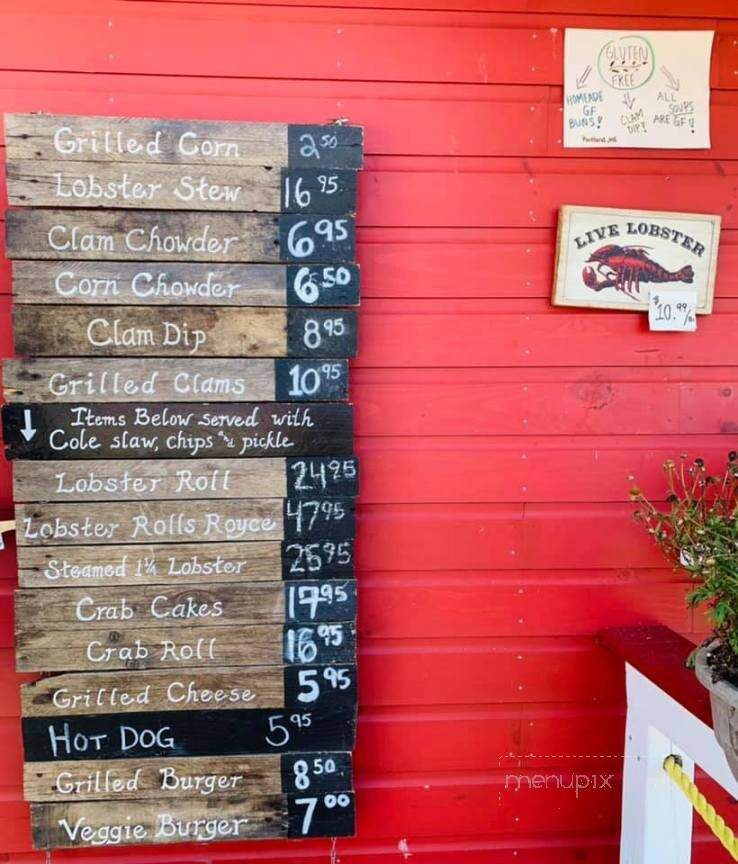 Grilled Corn 2.50
Lobster Stew 16.95
Clam Chowder 6.95
Corn Chowder 6.50
Clam Dip 8.95
Grilled Clams 10.95
↓ Items Below served with
Cole slaw, chips and pickle
Lobster Roll 24.95
Lobster Rolls Royce 47.95
Steamed 1¼ Lobster 25.95
Crab Cakes 17.95
Crab Roll 16.95
Grilled Cheese 5.95
HOT DOG 5.95
Grilled Burger 8.50
Veggie Burger 7.00
GLUTEN
FREE
HOMEADE
GF
BUNS!
CLAM
DIP!
ALL
SOUPS
ARE GF!
Portland, ME
LIVE LOBSTER
$10.99/
menupix